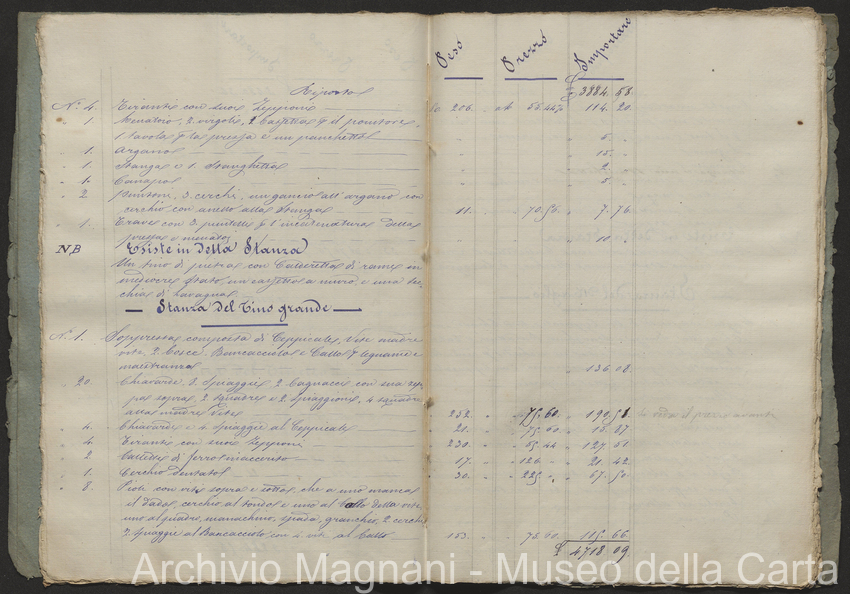 Peso Prezzo Importare
Riporto £ 3884 53
N.° 4 Tiranti con suoi Zepponi 206 55.44 114 20
1 Menatoio, 2 1 pontone,
1 tavola la pressa e un panchetto 5
1 Argano 15
1 Stanga e 1 Stanghetta 2
1 Canapo 5
2 3 cerchi, un gancio all'argano con
cerchio con anello alla Stanga 11 70.50 7.76
1 Trave con 3 puntelli l'incatenatura della
pressa e 10
NB Esiste in detta Stanza
Un tino di pietra con Calderetta di rame in
mediocre stato, un cassetto a muro, e una
di lavagna
Stanza del Tino grande
N.° 1. Soppressa composta di Ceppicale, Vite madre
vite, 2 Cosce, Bancacciolo e Ballo legname e
maestranza 136.08
20 Chiavarde, 3 Spiagge 2 con sua
sopra, 2 squadre e 2 Spiaggioni, 4 squadre
alla madre vite 252 75.60 190.51
4 Chiavarde e 4 Spiagge al Ceppicale 21 75.60 15.87
4 Tiranti con suoi Zepponi 230 55.44 127.51
2 di ferro 17 126 21.42
1 Cerchio dentato 30 225 67.50
8 con vite sopra e sotto, che a uno manca
il dado, cerchio al tondo e uno al ballo della vite,
uno al quadro, manachino, spada, granchio, 2 cerchi
2 Spiagge al Bancacciolo con 4 vite al ballo 153 75.60 115.66
£ 4718.09
Archivio Magnani - Museo della Carta